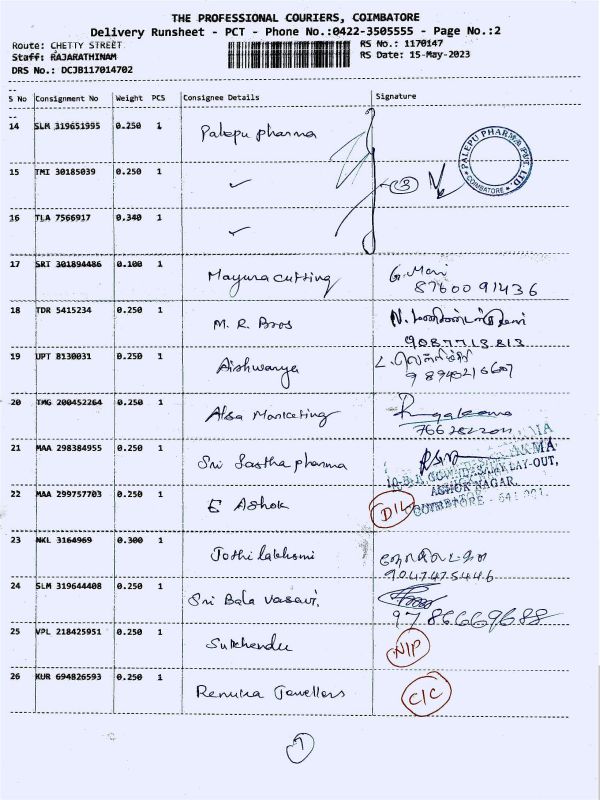 THE PROFESSIONAL COURIERS, COIMBATORE
Delivery Runsheet - PCT - Phone No.:0422-3505555 - Page No.:2
Route: CHETTY STREET
RS No.: 1170147
Staff: RAJARATHINAM
RS Date: 15-May-2023
DRS No.: DCJB117014702
S No Consignment No Weight PCS Consignee Details Signature
14 SLM 319651995 0.250 1 Palepu pharma
PALEPU PHARMA PVT. LTD. COIMBATORE
15 TMI 30185039 0.250 1 ✓ 3
16 TLA 7566917 0.340 1 ✓
17 SRT 301894486 0.100 1 Mayura cutting G. Mani
8760091436
18 TDR 5415234 0.250 1 M. R. Bros N.
9087713813
19 UPT 8130031 0.250 1 Aishwarya L.
20 TMG 200452264 0.250 1 Alsa Marketing
21 MAA 298384955 0.250 1 Sri Sastha pharma
LAY-OUT,
ASHOK NAGAR,
COIMBATORE - 641 001.
22 MAA 299757703 0.250 1 E Ashok D/L
23 NKL 3164969 0.300 1 Jothi lakshmi
9047475446
24 SLM 319644408 0.250 1 Sri Bala Vasavi,
9786669688
25 VPL 218425951 0.250 1 Sukhendu N/P
26 KUR 694826593 0.250 1 Renuka Jewellers C/C
7